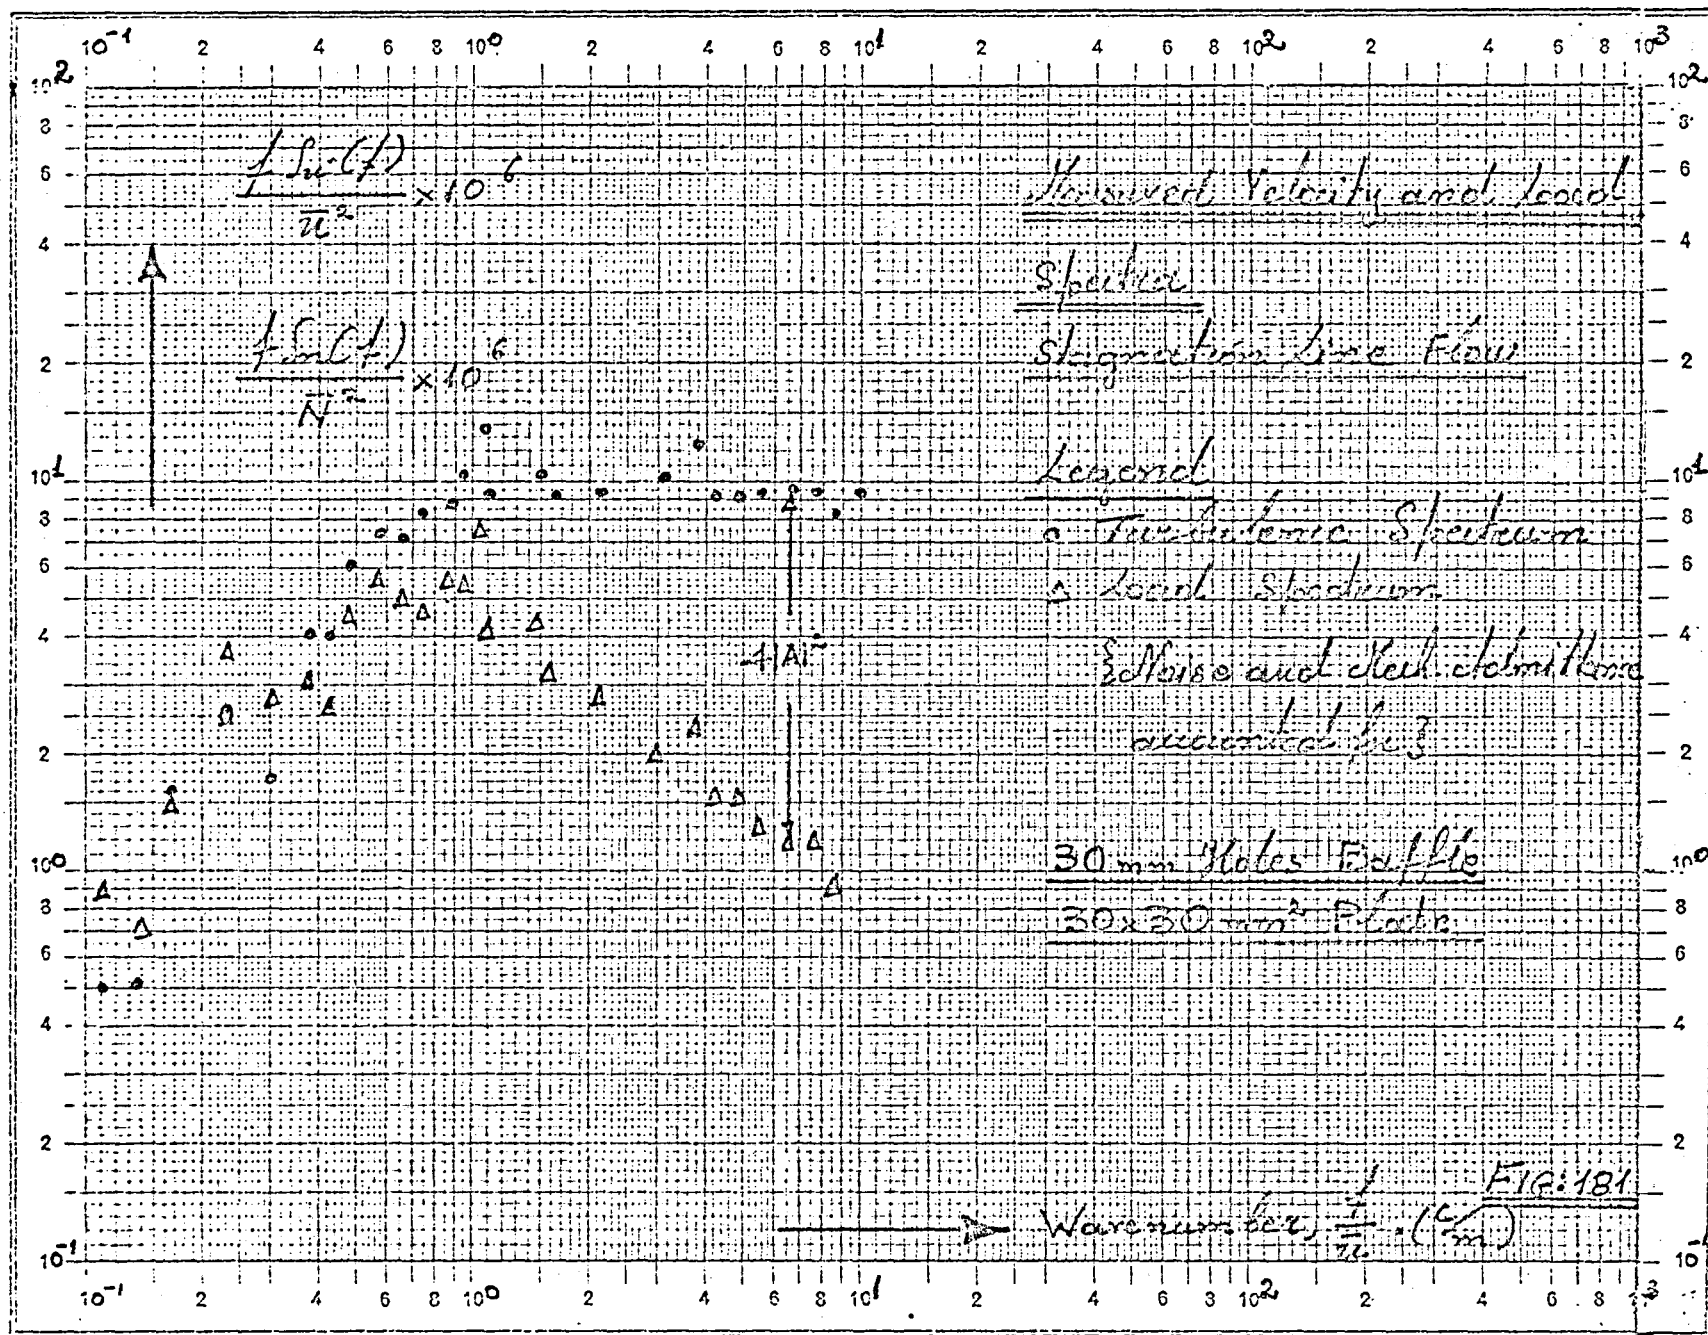 10-1 2 4 6 8 10⁰ 2 4 6 8 10¹ 2 4 6 8 10² 2 4 6 8 10³
10² 10²
8 8
6 6
4 4
2 2
10¹ 10¹
8 8
6 6
4 4
2 2
10⁰ 10⁰
8 8
6 6
4 4
2 2
10-1 10-1
f Su(f)
ū² × 10⁶
f Sn(f)
N̄² × 10⁶
Measured Velocity and Load
Spectra
Stagnation Line Flow
Legend
o Turbulence Spectrum
Δ Load Spectrum
4|A|²
Noise and Admittance
accounted for
30 mm Holes Baffle
30x30 mm² Plate
FIG:181
Wavenumber, f/ū . (c/m)
10-1 2 4 6 8 10⁰ 2 4 6 8 10¹ 2 4 6 8 10² 2 4 6 8